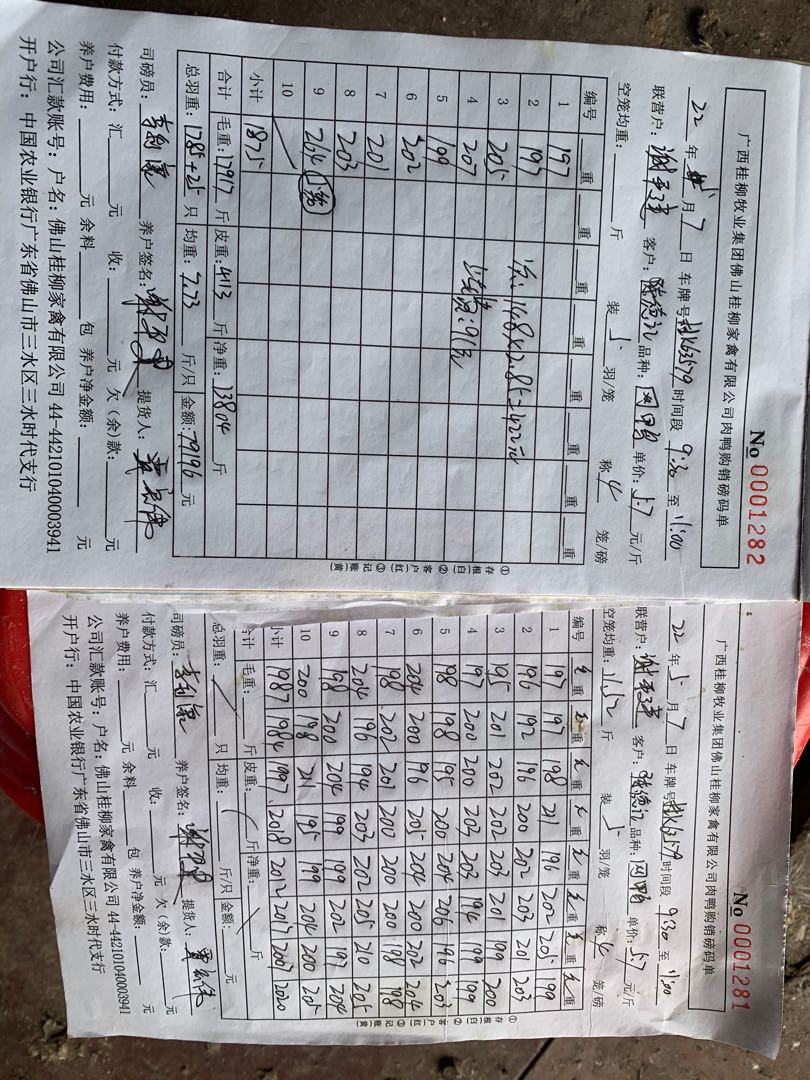 广西桂柳牧业集团佛山桂柳家禽有限公司肉鸭购销磅码单
No 0001282
22 年 5 月 7 日 车牌号 63579 时间段 9:30 至 11:00
联营户: 客户: 品种: 单价: 5.7 元/斤
空笼均重: 斤 装 5 羽/笼 称 4 笼/磅
编号 重 重 重 重 重 重 重 重
1 197
2 197
3 205
4 207
5 199
6 202
7 201
8 203
9 264
10
小计 1875
148×2.85=422元
91只
合计 毛重: 17917 斤 皮重: 4113 斤 净重: 13804 斤
总羽重: 1785+25 只 均重: 7.73 斤/只 金额: 79196 元
司磅员: 养户签名: 提货人:
付款方式: 汇 元 收: 元 欠(余)款: 元
养户费用: 元 余料 包 养户净金额: 元
公司汇款账号: 户名: 佛山桂柳家禽有限公司 44-442101040003941
开户行: 中国农业银行广东省佛山市三水区三水时代支行
①存根(白) ②客户(红) ③记账(黄)
广西桂柳牧业集团佛山桂柳家禽有限公司肉鸭购销磅码单
No 0001281
22 年 5 月 7 日 车牌号 63579 时间段 9:30 至 11:00
联营户: 客户: 品种: 单价: 5.7 元/斤
空笼均重: 11.52 斤 装 5 羽/笼 称 4 笼/磅
编号 毛重 毛重 毛重 毛重 毛重 毛重 重 毛重
1 197 197 198 211 196 202 205 199
2 196 192 196 200 202 203 201 203
3 195 201 202 202 203 201 199 200
4 197 200 200 203 203 194 199 199
5 198 198 195 200 204 206 196 203
6 204 200 196 205 204 200 202 204
7 198 202 201 200 200 200 198 198
8 204 196 194 203 202 205 210 205
9 198 200 204 199 199 202 197 204
10 200 198 211 195 199 204 200 205
小计 1987 1984 1997 2018 2012 2017 2007 2020
合计 毛重: 斤 皮重: 斤 净重: 斤
总羽重: 只 均重: 斤/只 金额: 元
司磅员: 养户签名: 提货人:
付款方式: 汇 元 收: 元 欠(余)款: 元
养户费用: 元 余料 包 养户净金额: 元
公司汇款账号: 户名: 佛山桂柳家禽有限公司 44-442101040003941
开户行: 中国农业银行广东省佛山市三水区三水时代支行
①存根(白) ②客户(红) ③记账(黄)